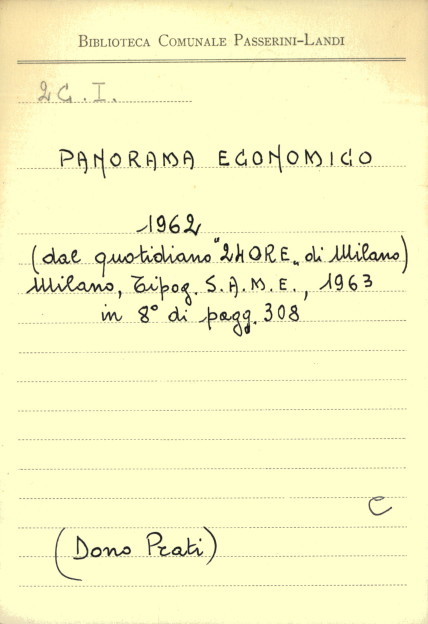 BIBLIOTECA COMUNALE PASSERINI-LANDI
2G.I.
PANORAMA ECONOMICO
1962
(dal quotidiano "24ORE" di Milano)
Milano, Tipog. S.A.M.E., 1963
in 8° di pagg. 308
C
(Dono Prati)